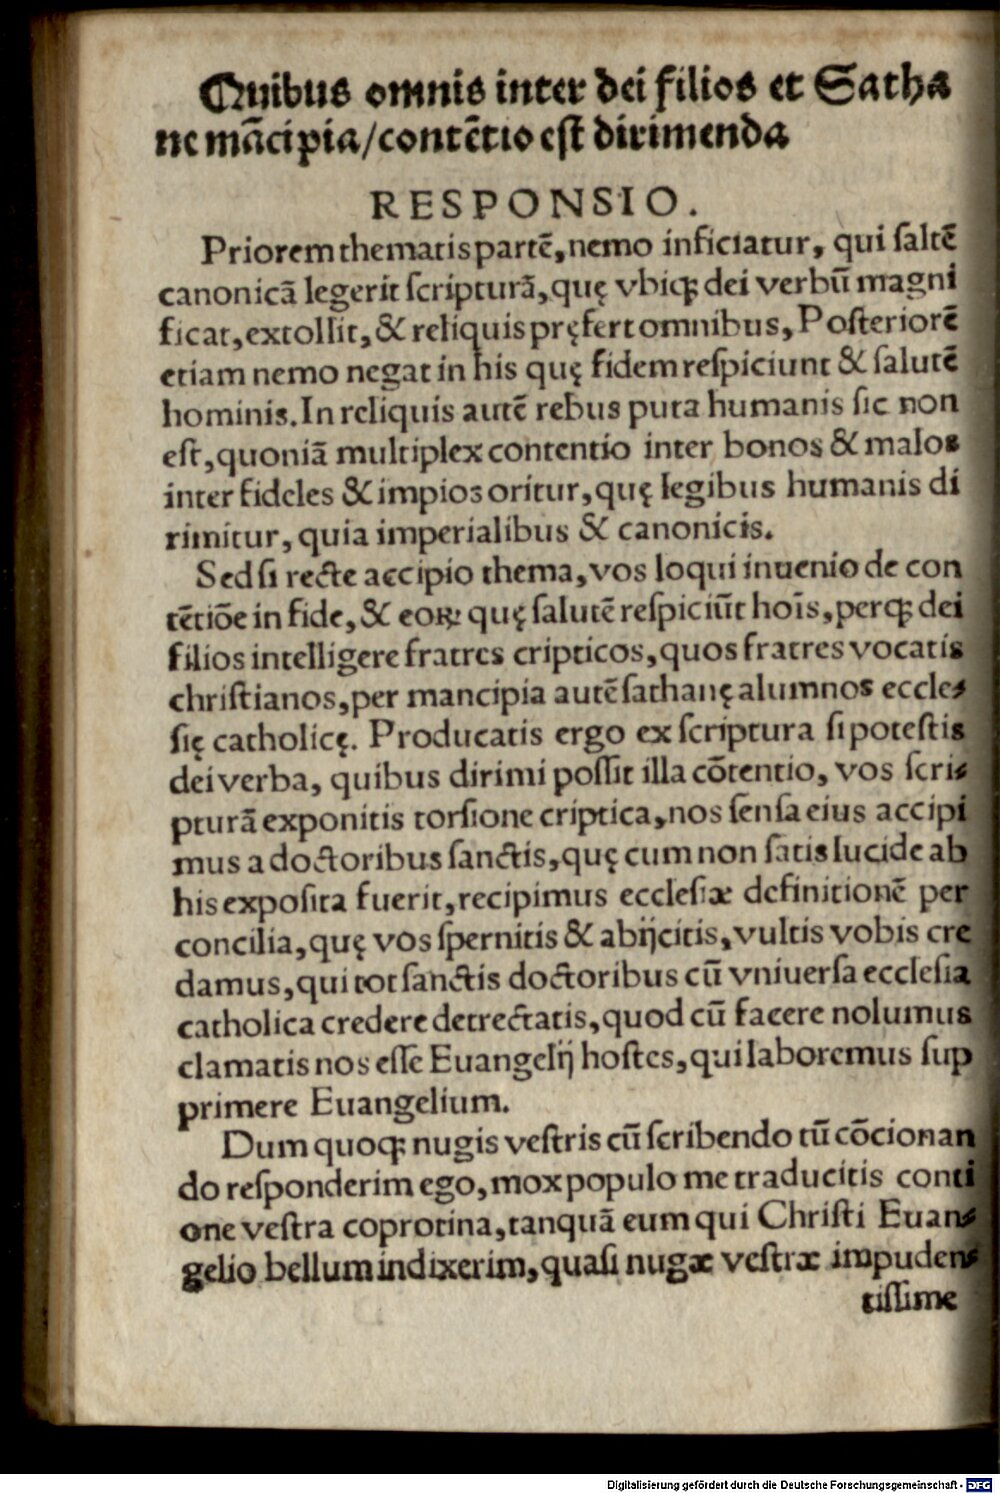 Quibus omnis inter dei filios et Satha
ne mācipia/contētio est dirimenda
RESPONSIO.
Priorem thematis partē, nemo inficiatur, qui saltē
canonicā legerit scripturā, quę vbiqꝫ dei verbū magni
ficat, extollit, & reliquis pręfert omnibus, Posteriorē
etiam nemo negat in his quę fidem respiciunt & salutē
hominis. In reliquis autē rebus puta humanis sic non
est, quoniā multiplex contentio inter bonos & malos
inter fideles & impios oritur, quę legibus humanis di
rimitur, quia imperialibus & canonicis.
Sed si recte accipio thema, vos loqui inuenio de con
tētiōe in fide, & eoꝝ quę salutē respiciūt hoīs, perqꝫ dei
filios intelligere fratres cripticos, quos fratres vocatis
christianos, per mancipia autē sathanę alumnos eccle⸗
się catholicę. Producatis ergo ex scriptura si potestis
dei verba, quibus dirimi possit illa cōtentio, vos scri⸗
pturā exponitis torsione criptica, nos sensa eius accipi
mus a doctoribus sanctis, quę cum non satis lucide ab
his exposita fuerit, recipimus ecclesiæ definitionē per
concilia, quę vos spernitis & abijcitis, vultis vobis cre
damus, qui tot sanctis doctoribus cū vniuersa ecclesia
catholica credere detrectatis, quod cū facere nolumus
clamatis nos esse Euangelij hostes, qui laboremus sup
primere Euangelium.
Dum quoqꝫ nugis vestris cū scribendo tū cōcionan
do responderim ego, mox populo me traducitis conti
one vestra coprotina, tanquā eum qui Christi Euan⸗
gelio bellum indixerim, quasi nugæ vestræ impuden⸗
tissime
Digitalisierung gefördert durch die Deutsche Forschungsgemeinschaft - DFG